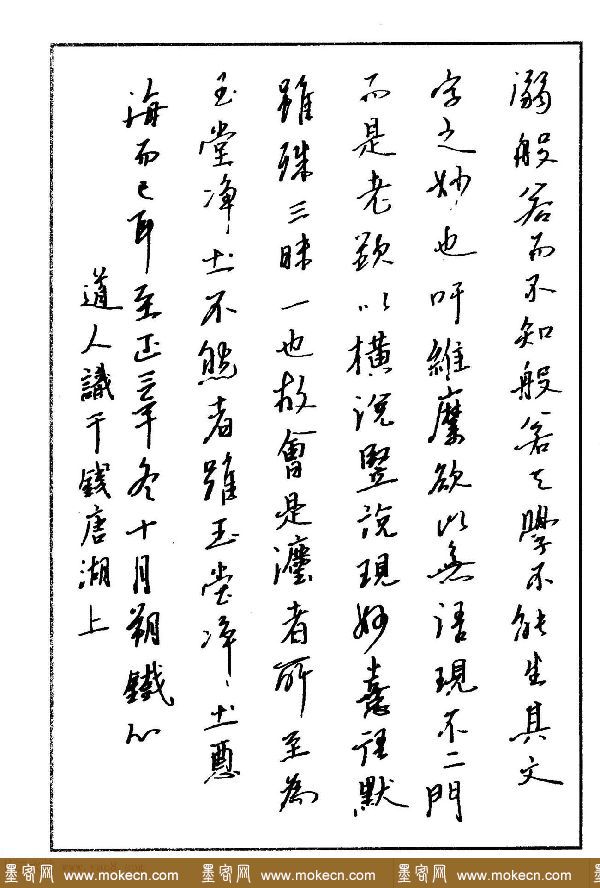 溺般若而不知般若之學不能生其文
字之妙也吁維摩欲以無語現不二門
而是老顛以橫說豎說現妙意語默
雖殊三昧一也故會是瀍者所至為
玉堂淨土不然者雖玉堂淨〻土
海而已耳至正三年冬十月朔鐵心
道人識于錢唐湖上
墨客网 www.mokecn.com 墨客网 www.mokecn.com 墨客网 www.mokecn.com 墨客网 www.mokecn.com